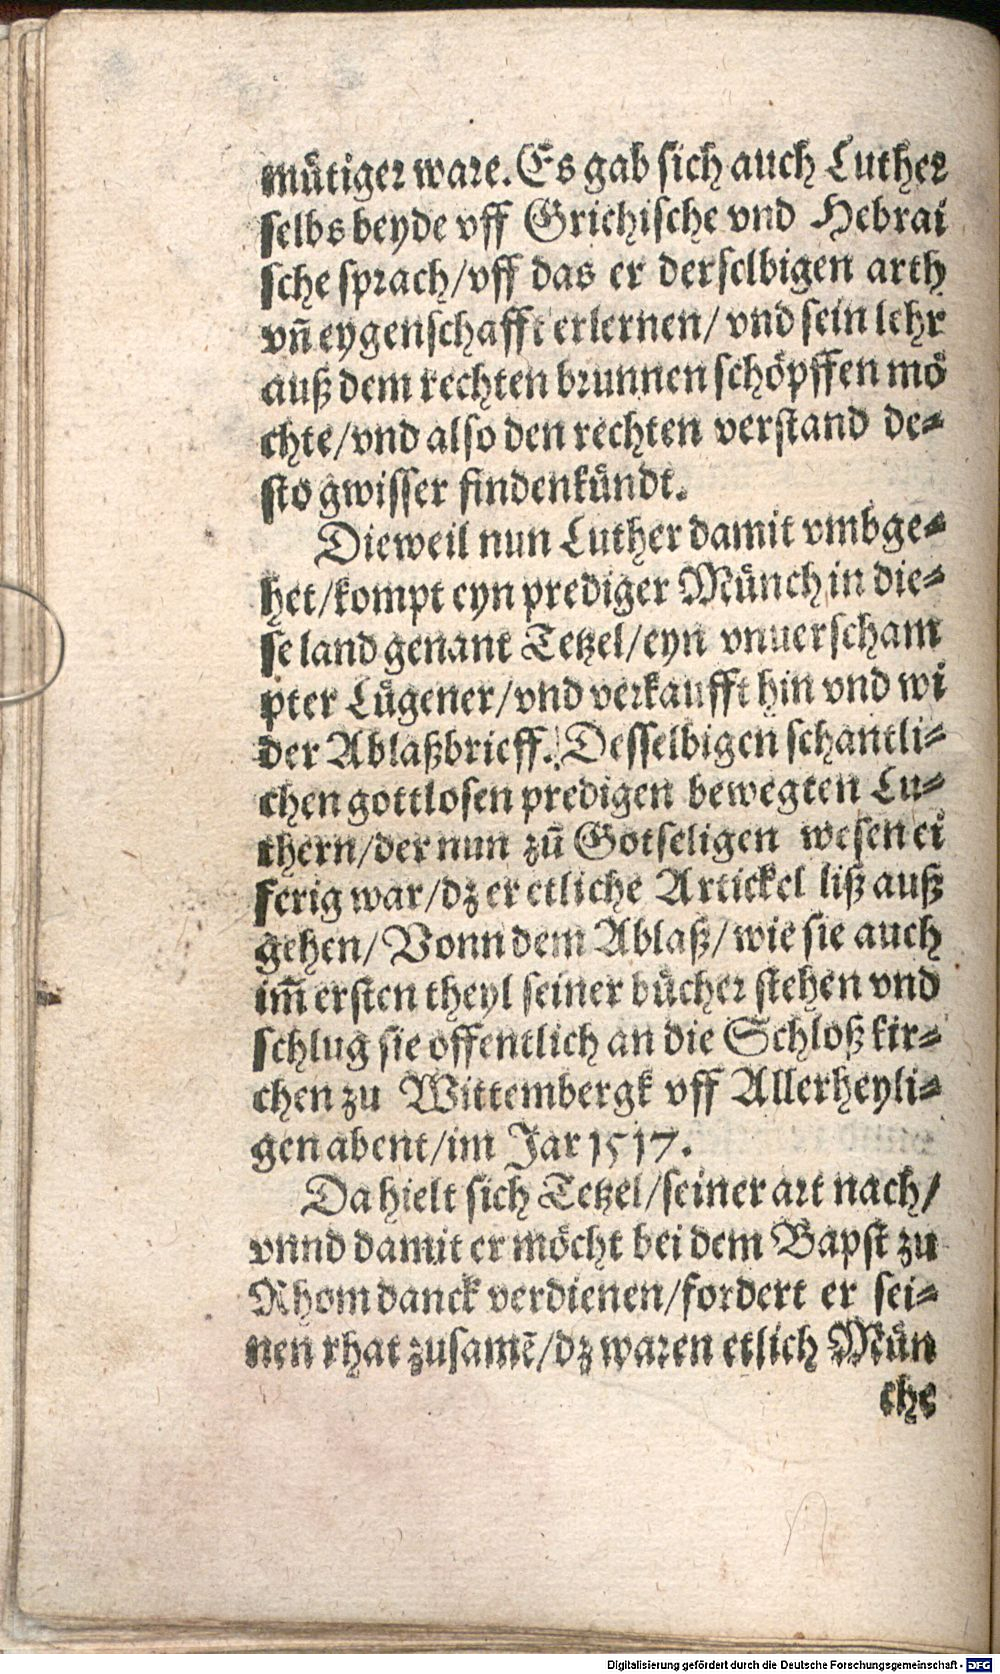 mütiger ware. Es gab sich auch Luther
selbs beyde vff Grichische vnd Hebrai
sche sprach/vff das er derselbigen arth
vñ eygenschafft erlernen/ vnd sein lehr
auß dem rechten brunnen schöpffen mö
chte/vnd also den rechten verstand de-
sto gwisser finden kündt.
Dieweil nun Luther damit vmbge-
het/kompt eyn prediger Münch in die-
se land genant Tetzel/eyn vnuerscham
pter Lügener/vnd verkaufft hin vnd wi
der Ablaßbrieff. Desselbigen schantli-
chen gottlosen predigen bewegten Lu-
thern/der nun zů Gotseligen wesen ei
ferig war/dz er etliche Artickel liß auß
gehen/ Vonn dem Ablaß/wie sie auch
im̃ ersten theyl seiner bücher stehen vnd
schlug sie offentlich an die Schloß kir-
chen zu Wittembergk vff Allerheyli-
gen abent/im Jar 1517.
Da hielt sich Tetzel/seiner art nach/
vnnd damit er möcht bei dem Bapst zu
Rhom danck verdienen/fordert er sei-
nen rhat zusamẽ/dz waren etlich Mün
che
Digitalisierung gefördert durch die Deutsche Forschungsgemeinschaft - DFG